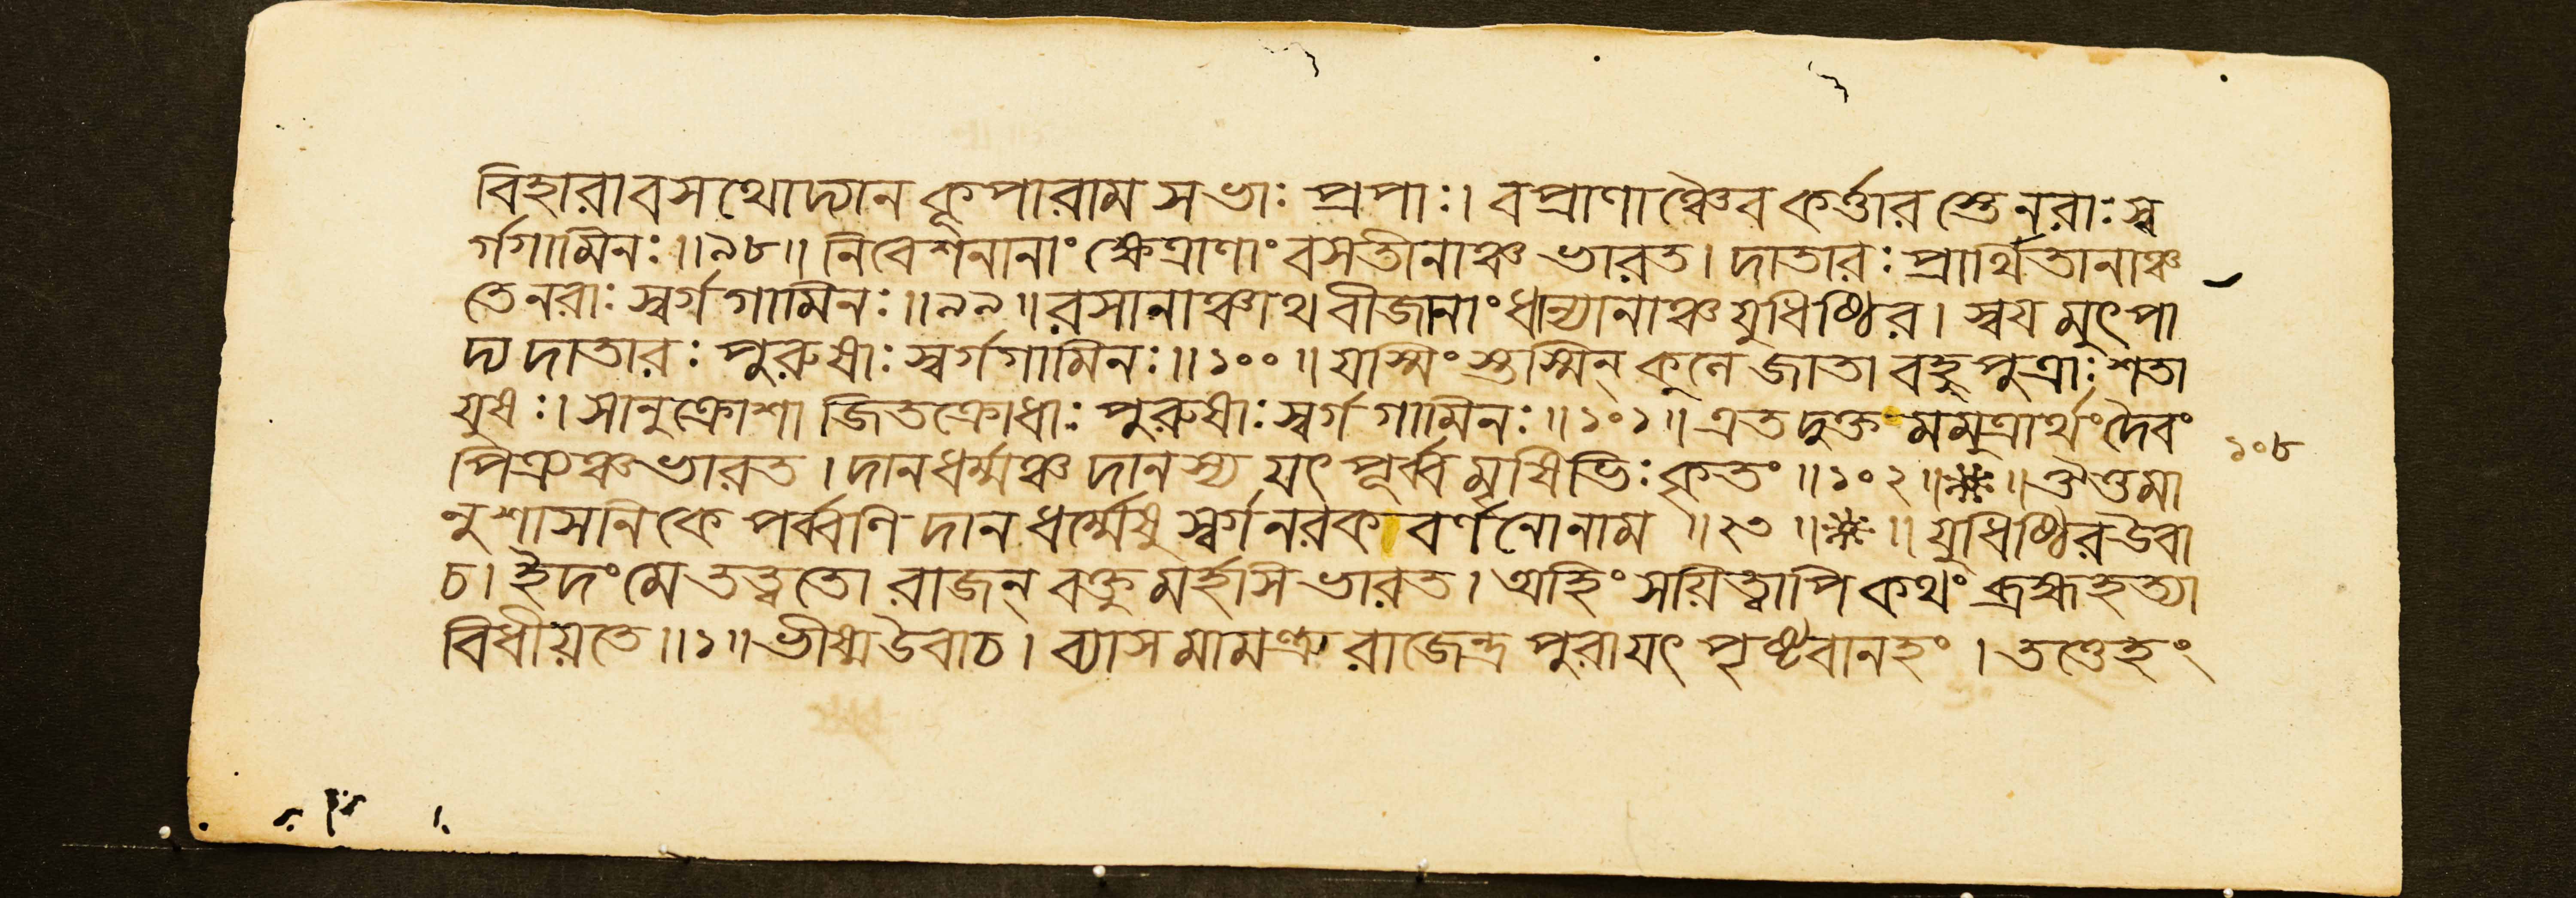 বিহারাবসথোদ্যানকূপারামসভাঃ প্রপাঃ। বপ্রাণাঞ্চৈব কর্ত্তারস্তেনরাঃ স্ব
র্গগামিনঃ॥৯৮॥ নিবেশনানাং ক্ষেত্রাণাং বসতীনাঞ্চ ভারত। দাতারঃ প্রার্থিতানাঞ্চ
তেনরাঃ স্বর্গগামিনঃ॥৯৯॥ রসানাঞ্চাথ বীজানাং ধান্যানাঞ্চ যুধিষ্ঠির। স্বয়মুৎপা
দ্য দাতারঃ পুরুষাঃ স্বর্গগামিনঃ॥১০০॥ যস্মিংস্তস্মিন্ কুলে জাতা বহুপুত্রাঃ শতা
যুষঃ। সানুক্রোশা জিতক্রোধাঃ পুরুষাঃ স্বর্গগামিনঃ॥১০১॥ এতদুক্তমমুত্রার্থং দৈবং
পিত্রঞ্চ ভারত। দানধর্ম্মঞ্চ দানস্য যৎ পূর্ব্বমৃষিভিঃ কৃতং॥১০২॥※॥
নুশাসনিকে পর্ব্বণি দানধর্ম্মেষু স্বর্গনরকবর্ণনোনাম॥২৩॥※॥ যুধিষ্ঠির উবা
চ। ইদং মে তত্ত্বতো রাজন্ বক্তুমর্হসি ভারত। অহিংসয়িত্বাপি কথং ব্রহ্মহত্যা
বিধীয়তে॥১॥ ভীষ্ম উবাচ। ব্যাসমামন্ত্র্য রাজেন্দ্র পুরা যৎ পৃষ্টবানহং। তত্তেহং
১০৮